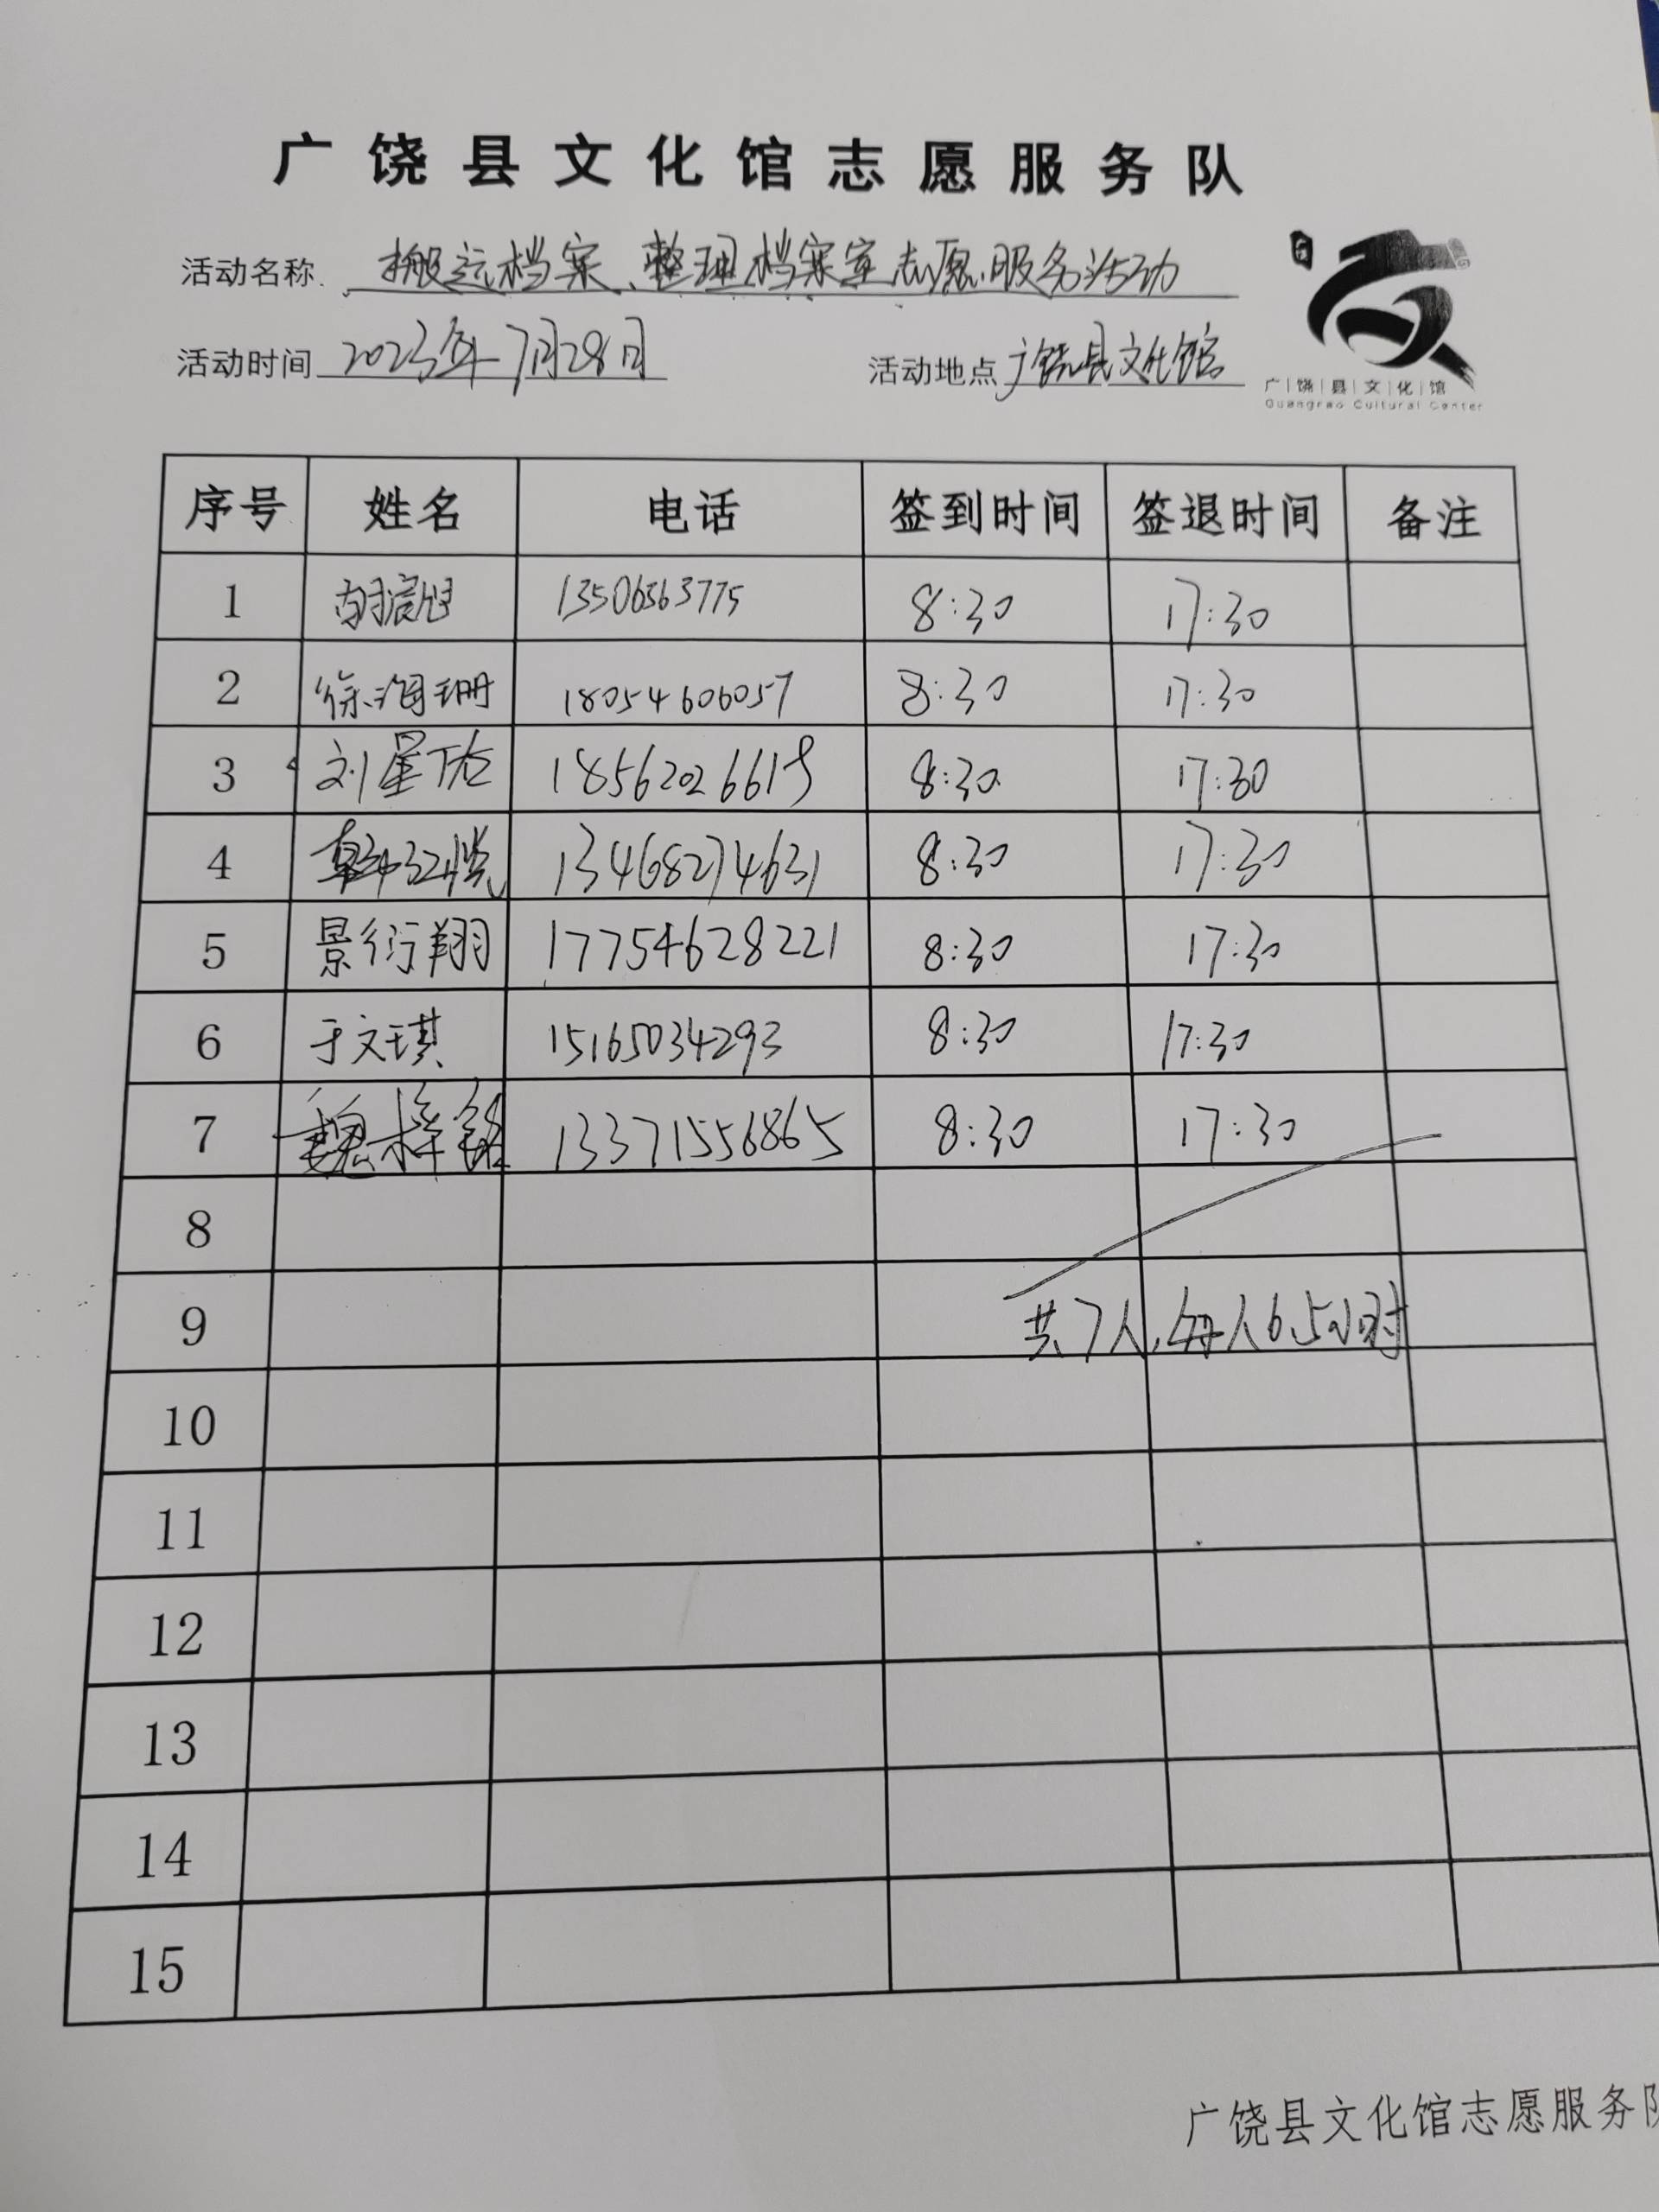 广饶县文化馆志愿服务队
活动名称 搬运档案、整理档案室志愿服务活动
活动时间 2023年7月28日 活动地点 广饶县文化馆
广|饶|县|文|化|馆
Guangrao Cultural Center
序号 姓名 电话 签到时间 签退时间 备注
1 13506363775 8:30 17:30
2 徐海珊 18054606057 8:30 17:30
3 刘星 18562026619 8:30 17:30
4 13468274631 8:30 17:30
5 景衍翔 17754628221 8:30 17:30
6 于文琪 15165034293 8:30 17:30
7 魏梓铭 13371556865 8:30 17:30
8
9 共7人,每人6.5小时
10
11
12
13
14
15
广饶县文化馆志愿服务队